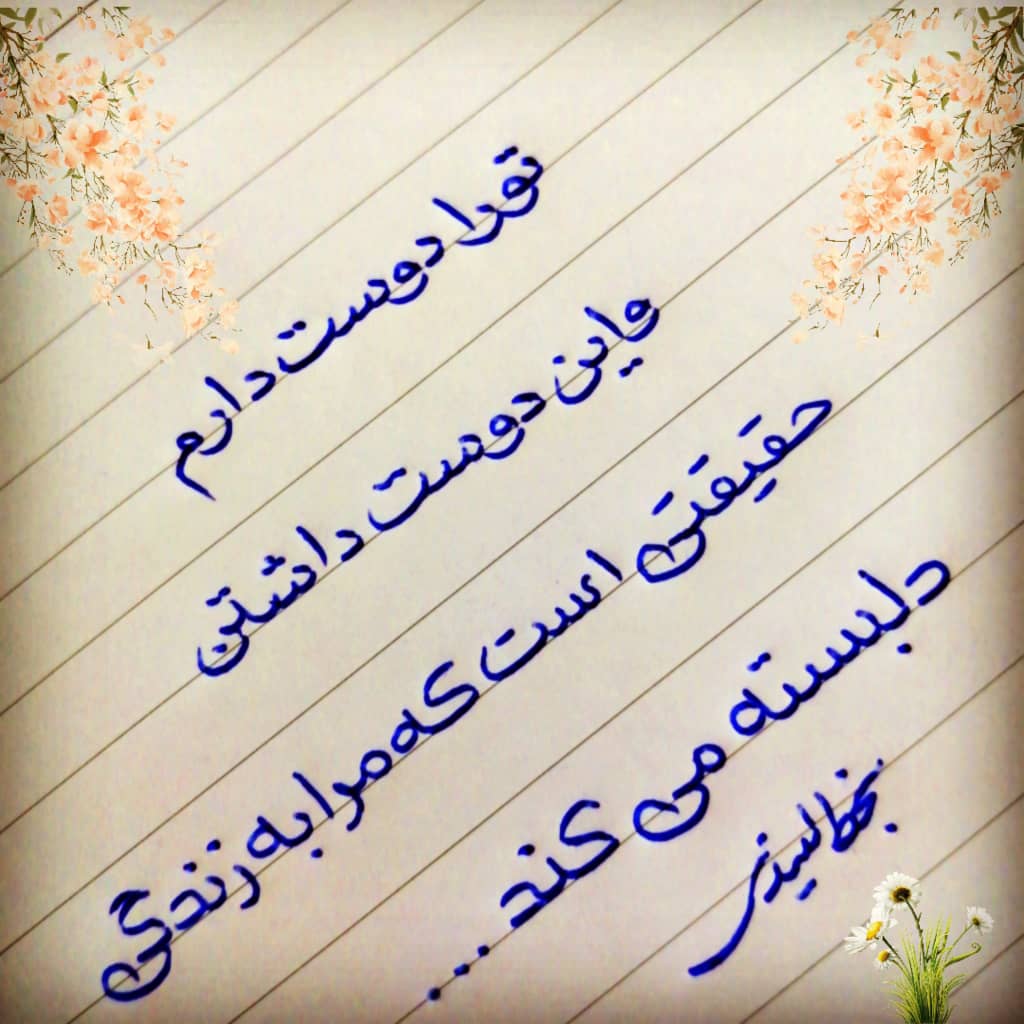 تو را دوست دارم
و این دوست داشتن
حقیقتی است که مرا به زندگی
دلبسته می کند...
بخط